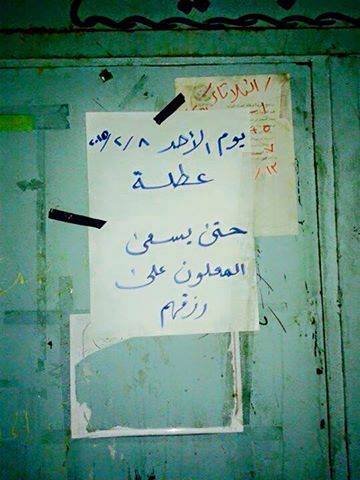 الثلاثاء /
يوم الأحد ٢٠١٥/٢/٨
عطلة
حتى يسعى
المعلون على
رزقهم